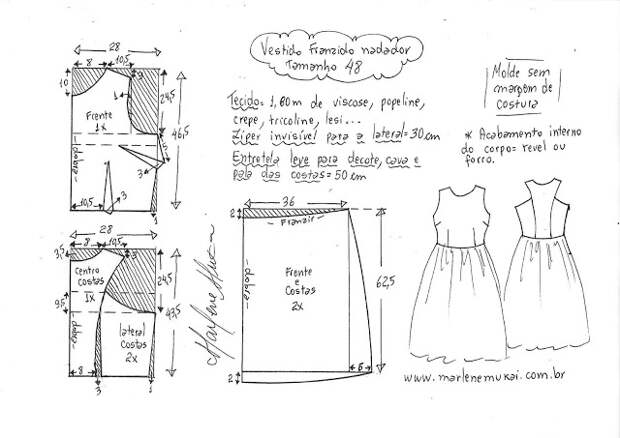 Vestido Franzido nadador
Tamanho 48
Tecido= 1,60m de viscose, popeline,
crepe, tricoline, lesi...
Ziper invisível para a lateral=30cm
Entretela leve para decote, cava e
pala das costas=50cm
Molde sem
margem de
costura
* Acabamento interno
do corpo= revel ou
forro.
28
8
10,5
10
3
1
24,5
46,5
Frente
1x
- dobra -
3
10,5
3
1
28
8
10,5
3,5
3
Centro
costas
1x
24,5
43,5
9,5
- dobra -
lateral
costas
2x
8
3
1
Marlene Mukai
36
2
- Franzir -
- dobra -
Frente
e
Costas
2x
62,5
6
2
www.marlenemukai.com.br